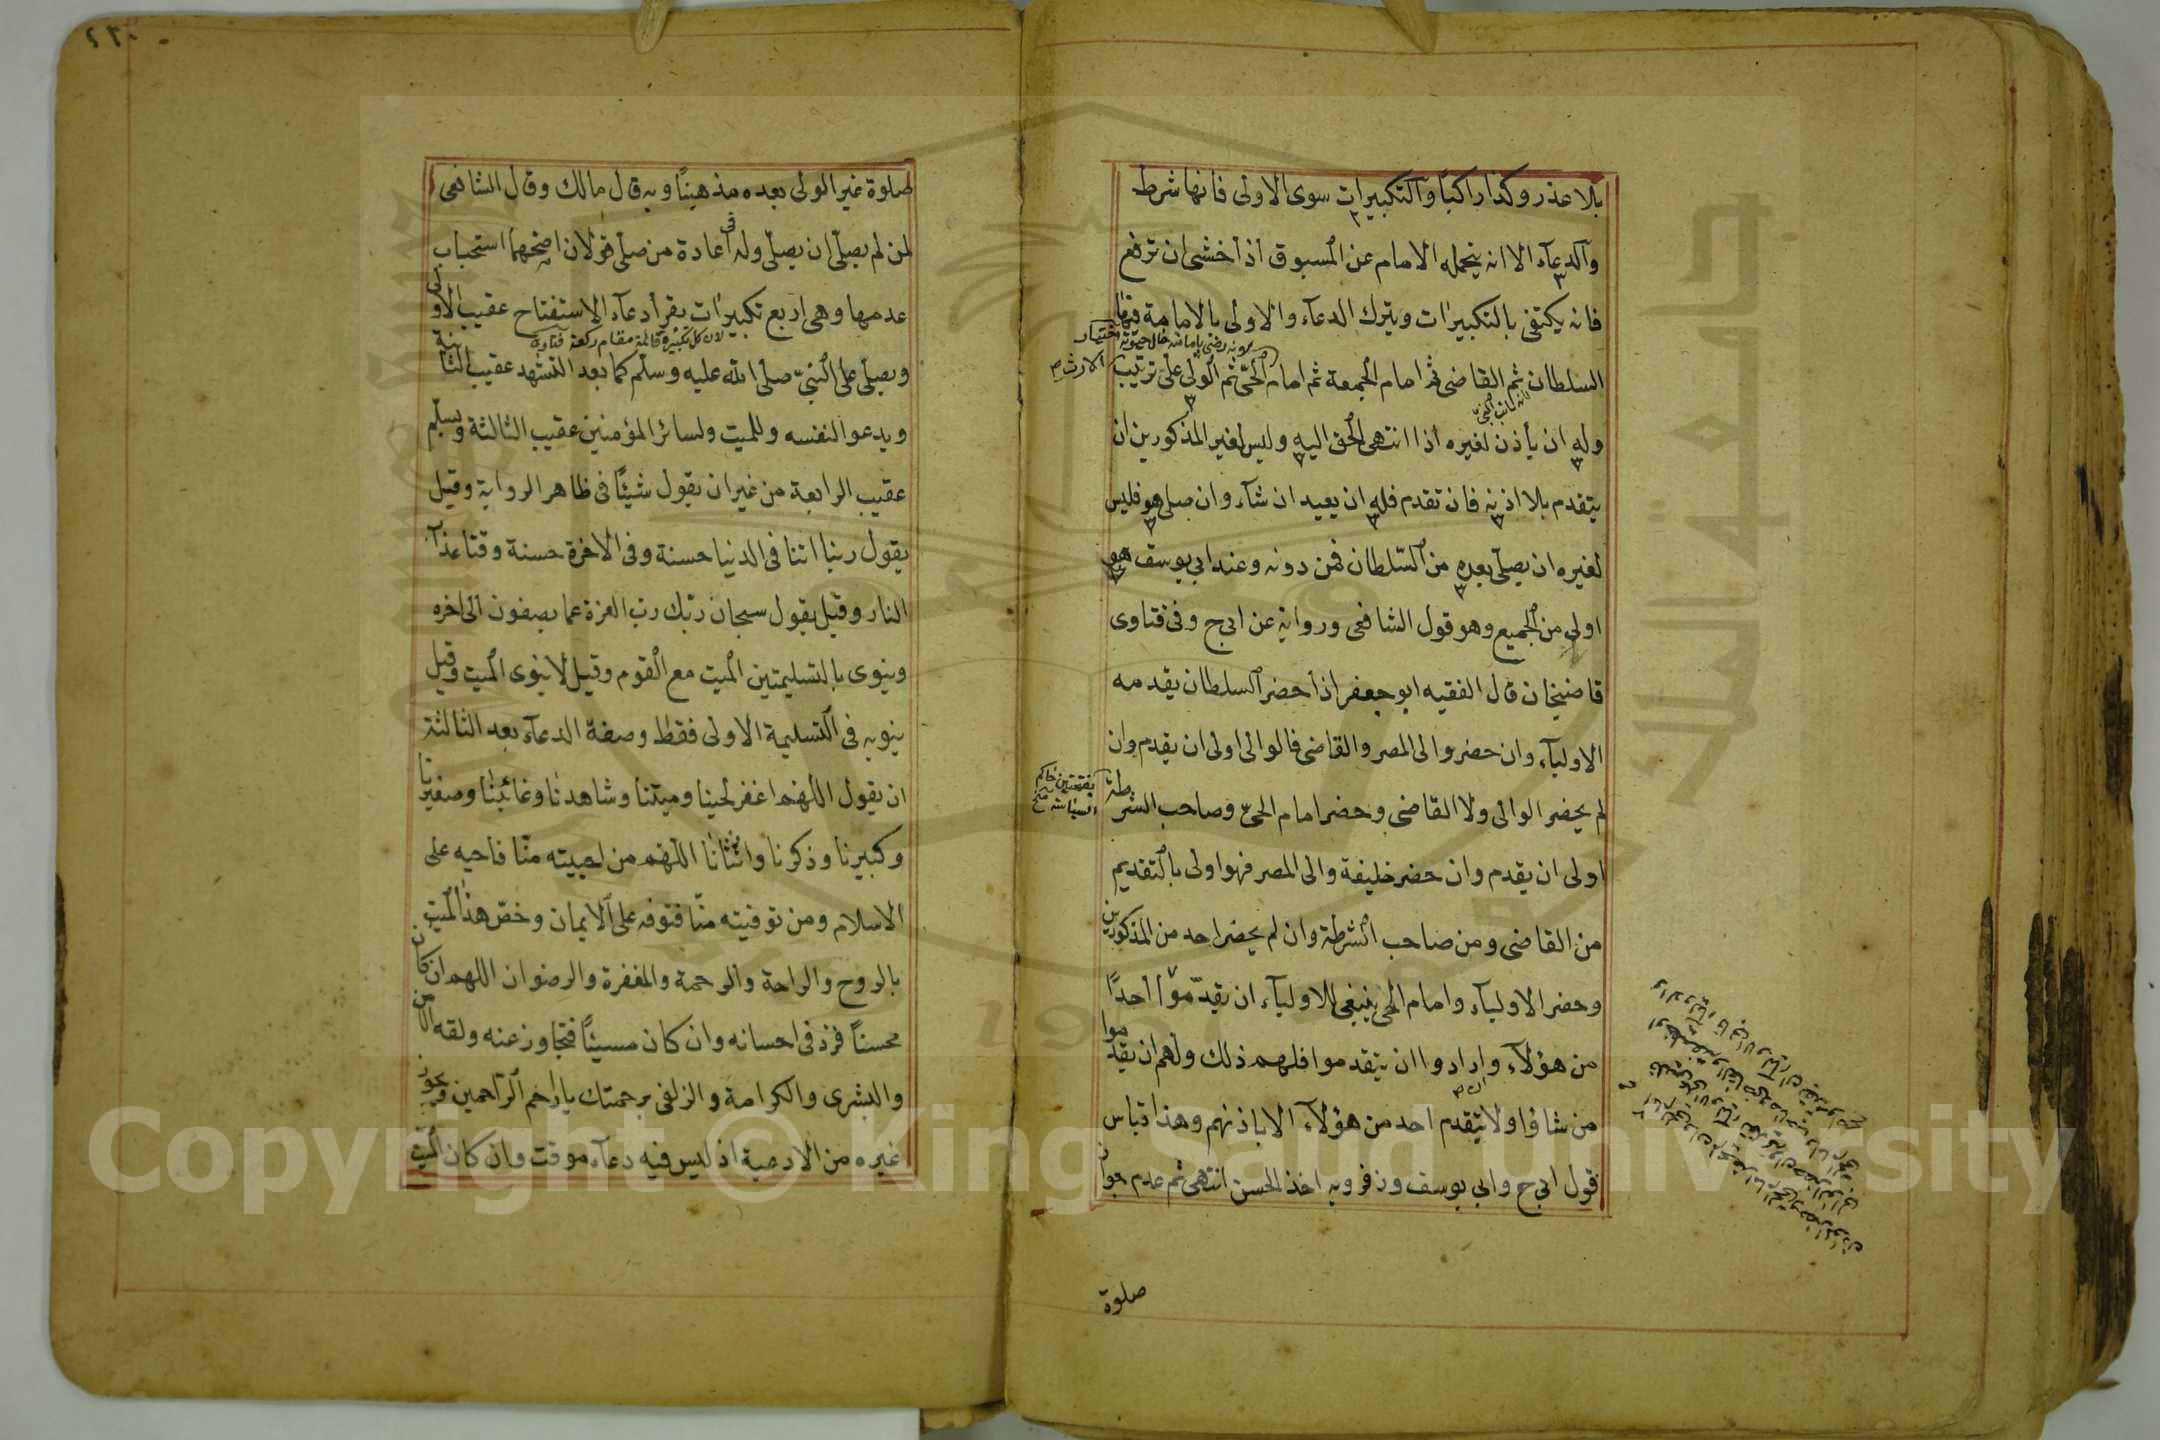 بلا عذر وكذا راكبًا والتكبيرات سوى الاولى فانها شرط
والدعآء الا انه يتحمله الامام عن المسبوق اذا خشى ان ترفع
فانه يكتفى بالتكبيرات ويترك الدعآء والاولى بالامامة فيها
السلطان ثم القاضى ثم امام الجمعة ثم امام الحى ثم الولى على ترتيب
وله ان يأذن لغيره اذا انتهى الحق اليه وليس لغير المذكورين ان
يتقدم بلا اذنه فان تقدم فله ان يعيد ان شآء وان صلى هو فليس
لغيره ان يصلى بعده من السلطان فمن دونه وعند ابي يوسف هو
اولى من الجميع وهو قول الشافعى ورواية عن ابى ح وفى فتاوى
قاضيخان قال الفقيه ابو جعفر اذا حضر السلطان يقدمه
الاوليآء وان حضر والى المصر والقاضى فالوالى اولى ان يقدم وان
لم يحضر الوالى ولا القاضى وحضر امام الحىّ وصاحب الشرطة
اولى ان يقدم وان حضر خليفة والى المصر فهو اولى بالتقديم
من القاضى ومن صاحب الشرطة وان لم يحضر احد من المذكورين
وحضر الاوليآء وامام الحى ينبغى للاوليآء ان يقدّموا احدًا
من هؤلآء وارادوا ان يتقدموا فلهم ذلك ولهم ان يقدموا
من شاؤا ولا يتقدم احد من هؤلآء الا باذنهم وهذا قياس
قول ابى ح وابي يوسف وزفر وبه اخذ الحسن انتهى ثم عدم جواز
صلوة
٢٢٠
صلوة غير الولى بعده مذهبنا وبه قال مالك وقال الشافعى
لمن لم يصلّى ان يصلّى وله فى اعادة من صلى قولان اصحهما استحباب
عدمها وهى اربع تكبيرات يقرأ دعآء الاستفتاح عقيب الاولى
لان كل تكبيرة قائمة مقام ركعة فتاوى
ويصلى على النبىّ صلى الله عليه وسلّم كما بعد التشهد عقيب الثانية
ويدعو لنفسه وللميت ولسائر المؤمنين عقيب الثالثة ويسلم
عقيب الرابعة من غير ان يقول شيئًا فى ظاهر الرواية وقيل
يقول ربنا اتنا فى الدنيا حسنة وفى الاخرة حسنة وقنا عذاب
النار وقيل يقول سبحان ربّك رب العزة عما يصفون الى اخره
وينوى بالتسليمتين الميت مع القوم وقيل لا ينوى الميت وقيل
ينويه فى التسليمة الاولى فقط وصفة الدعآء بعد الثالثة
ان يقول اللهم اغفر لحينا وميتنا وشاهدنا وغائبنا وصغيرنا
وكبيرنا وذكرنا وانثانا اللهم من احييته منّا فاحيه على
الاسلام ومن توفيته منّا فتوفه على الايمان وخصّ هذا الميت
بالروح والراحة والرحمة والمغفرة والرضوان اللهم ان كان
محسنًا فزد فى احسانه وان كان مسيئًا فتجاوز عنه ولقه الامن
والبشرى والكرامة والزلفى برحمتك يا ارحم الراحمين ويجوز
غيره من الادعية اذ ليس فيه دعآء موقت وان كان الميت
Copyright © King Saud University